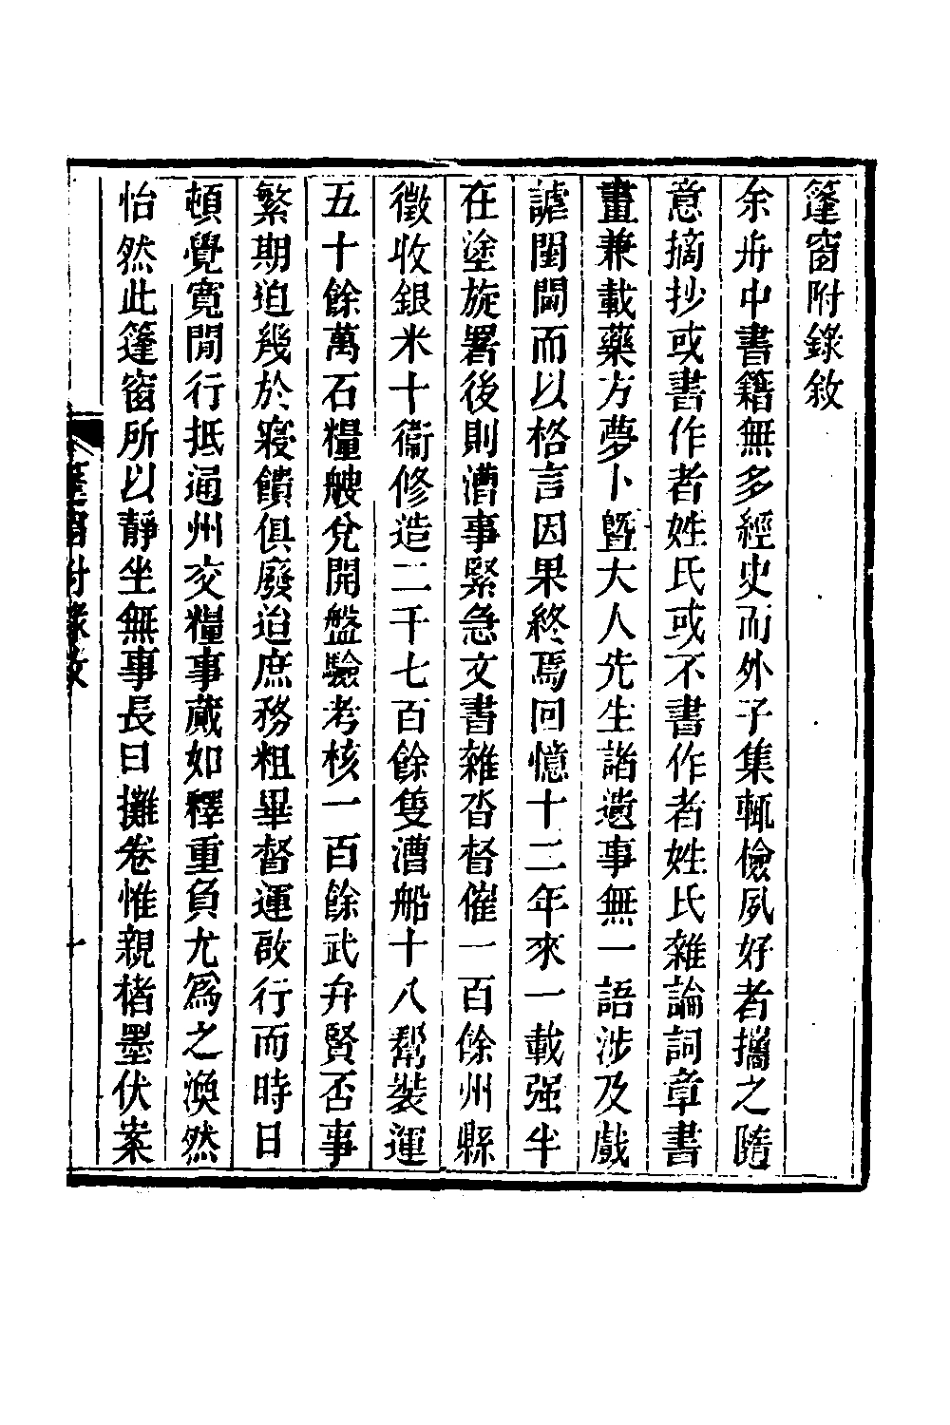 篷窗附錄敘
余舟中書籍無多經史而外子集輒儉夙好者攜之隨
意摘抄或書作者姓氏或不書作者姓氏雜論詞章書
畫兼載藥方夢卜曁大人先生諧遺事無一語涉及戲
謔閨闥而以格言因果終焉回憶十二年來一載强半
在塗旋署後則漕事緊急文書雜沓督催一百餘州縣
徵收銀米十衞修造二千七百餘隻漕船十八幫裝運
五十餘萬石糧艘兌開盤驗考核一百餘武弁賢否事
繁期迫幾於寢饋俱廢迨庶務粗畢督運啟行而時日
頓覺寬閒行抵通州交糧事蕆如釋重負尤爲之渙然
怡然此篷窗所以靜坐無事長日攤卷惟親楮墨伏案
篷窗附錄敘